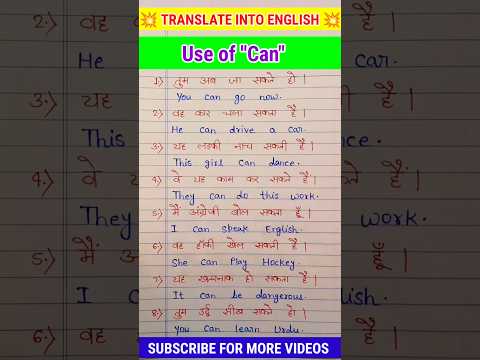 2.) वह
He
3.) यह
This
4.) वे
They
5.) मैं
I
6.) वह
TRANSLATE INTO ENGLISH
Use of "Can"
1.) तुम अब जा सकते हो।
You can go now.
2.) वह कार चला सकता है।
He can drive a car.
3.) यह लड़की नाच सकती है।
This girl can dance.
4.) वे यह काम कर सकते हैं।
They can do this work.
5.) मैं अंग्रेजी बोल सकता हूँ।
I can speak English.
6.) वह हॉकी खेल सकती है।
She can Play Hockey.
7.) यह खतरनाक हो सकता है।
It can be dangerous.
8.) तुम उर्दू सीख सकते हो।
You can learn Urdu.
SUBSCRIBE FOR MORE VIDEOS
है।
car.
है।
work.
हूँ।
lish.
है।